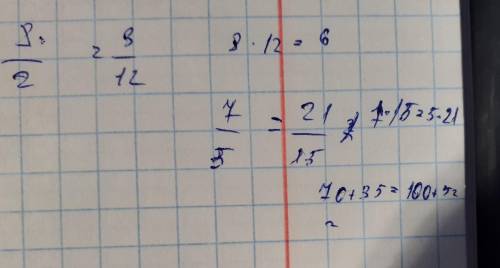 /2 = 9/12
8 · 12 = 6
7/5 = 21/15
7 · 15 = 5 · 21
70 + 35 = 100 + 5 =
=